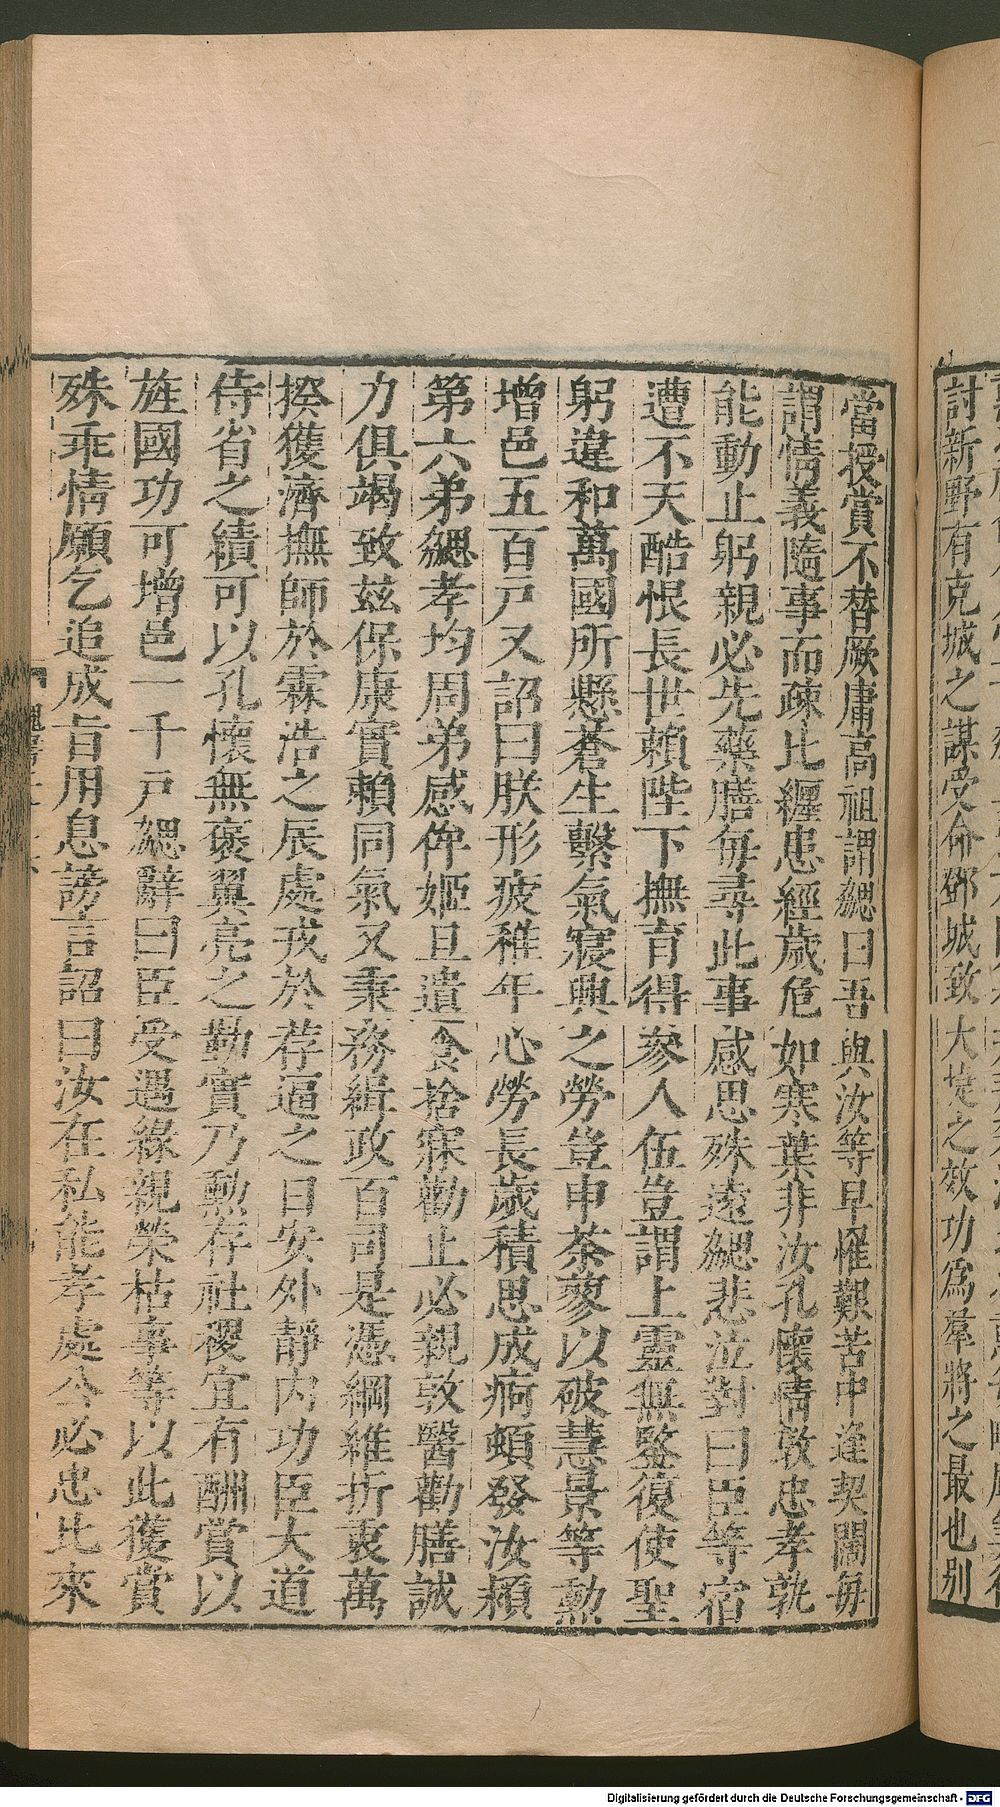 討新野有克城之謀受命鄧城致大捷之效功為羣將之最也別
當授賞不替厥庸高祖謂勰曰吾與汝等早罹艱苦中逢契闊每
謂情義隨事而疎比纏患經歲危如寒葉非汝孔懷情敦忠孝孰
能動止躬親必先藥膳每尋此事感思殊遠勰悲泣對曰臣等宿
遭不天酷恨長世賴陛下撫育得參人伍豈謂上靈無鑒復使聖
躬違和萬國所懸蒼生繫氣寢興之勞豈申荼蓼以破慧景等勲
增邑五百戸又詔曰朕形疲稚年心勞長歲積思成痾頓發汝潁
第六弟勰孝均周弟感侔姬旦遺食捨寐勸止必親敦醫勸膳誠
力俱竭致茲保康實賴同氣又秉務緝政百司是憑綱維折衷萬
揆獲濟撫師於霖浩之辰處戎於荐逼之日安外靜內功臣大道
侍省之績可以孔懷無褒翼亮之勤實乃勲存社稷宜有酬賞以
旌國功可增邑一千戸勰辭曰臣受遇緣親榮枯事等以此獲賞
殊乖情願乞追成旨用息謗言詔曰汝在私能孝處公必忠比來
Digitalisierung gefördert durch die Deutsche Forschungsgemeinschaft - DFG